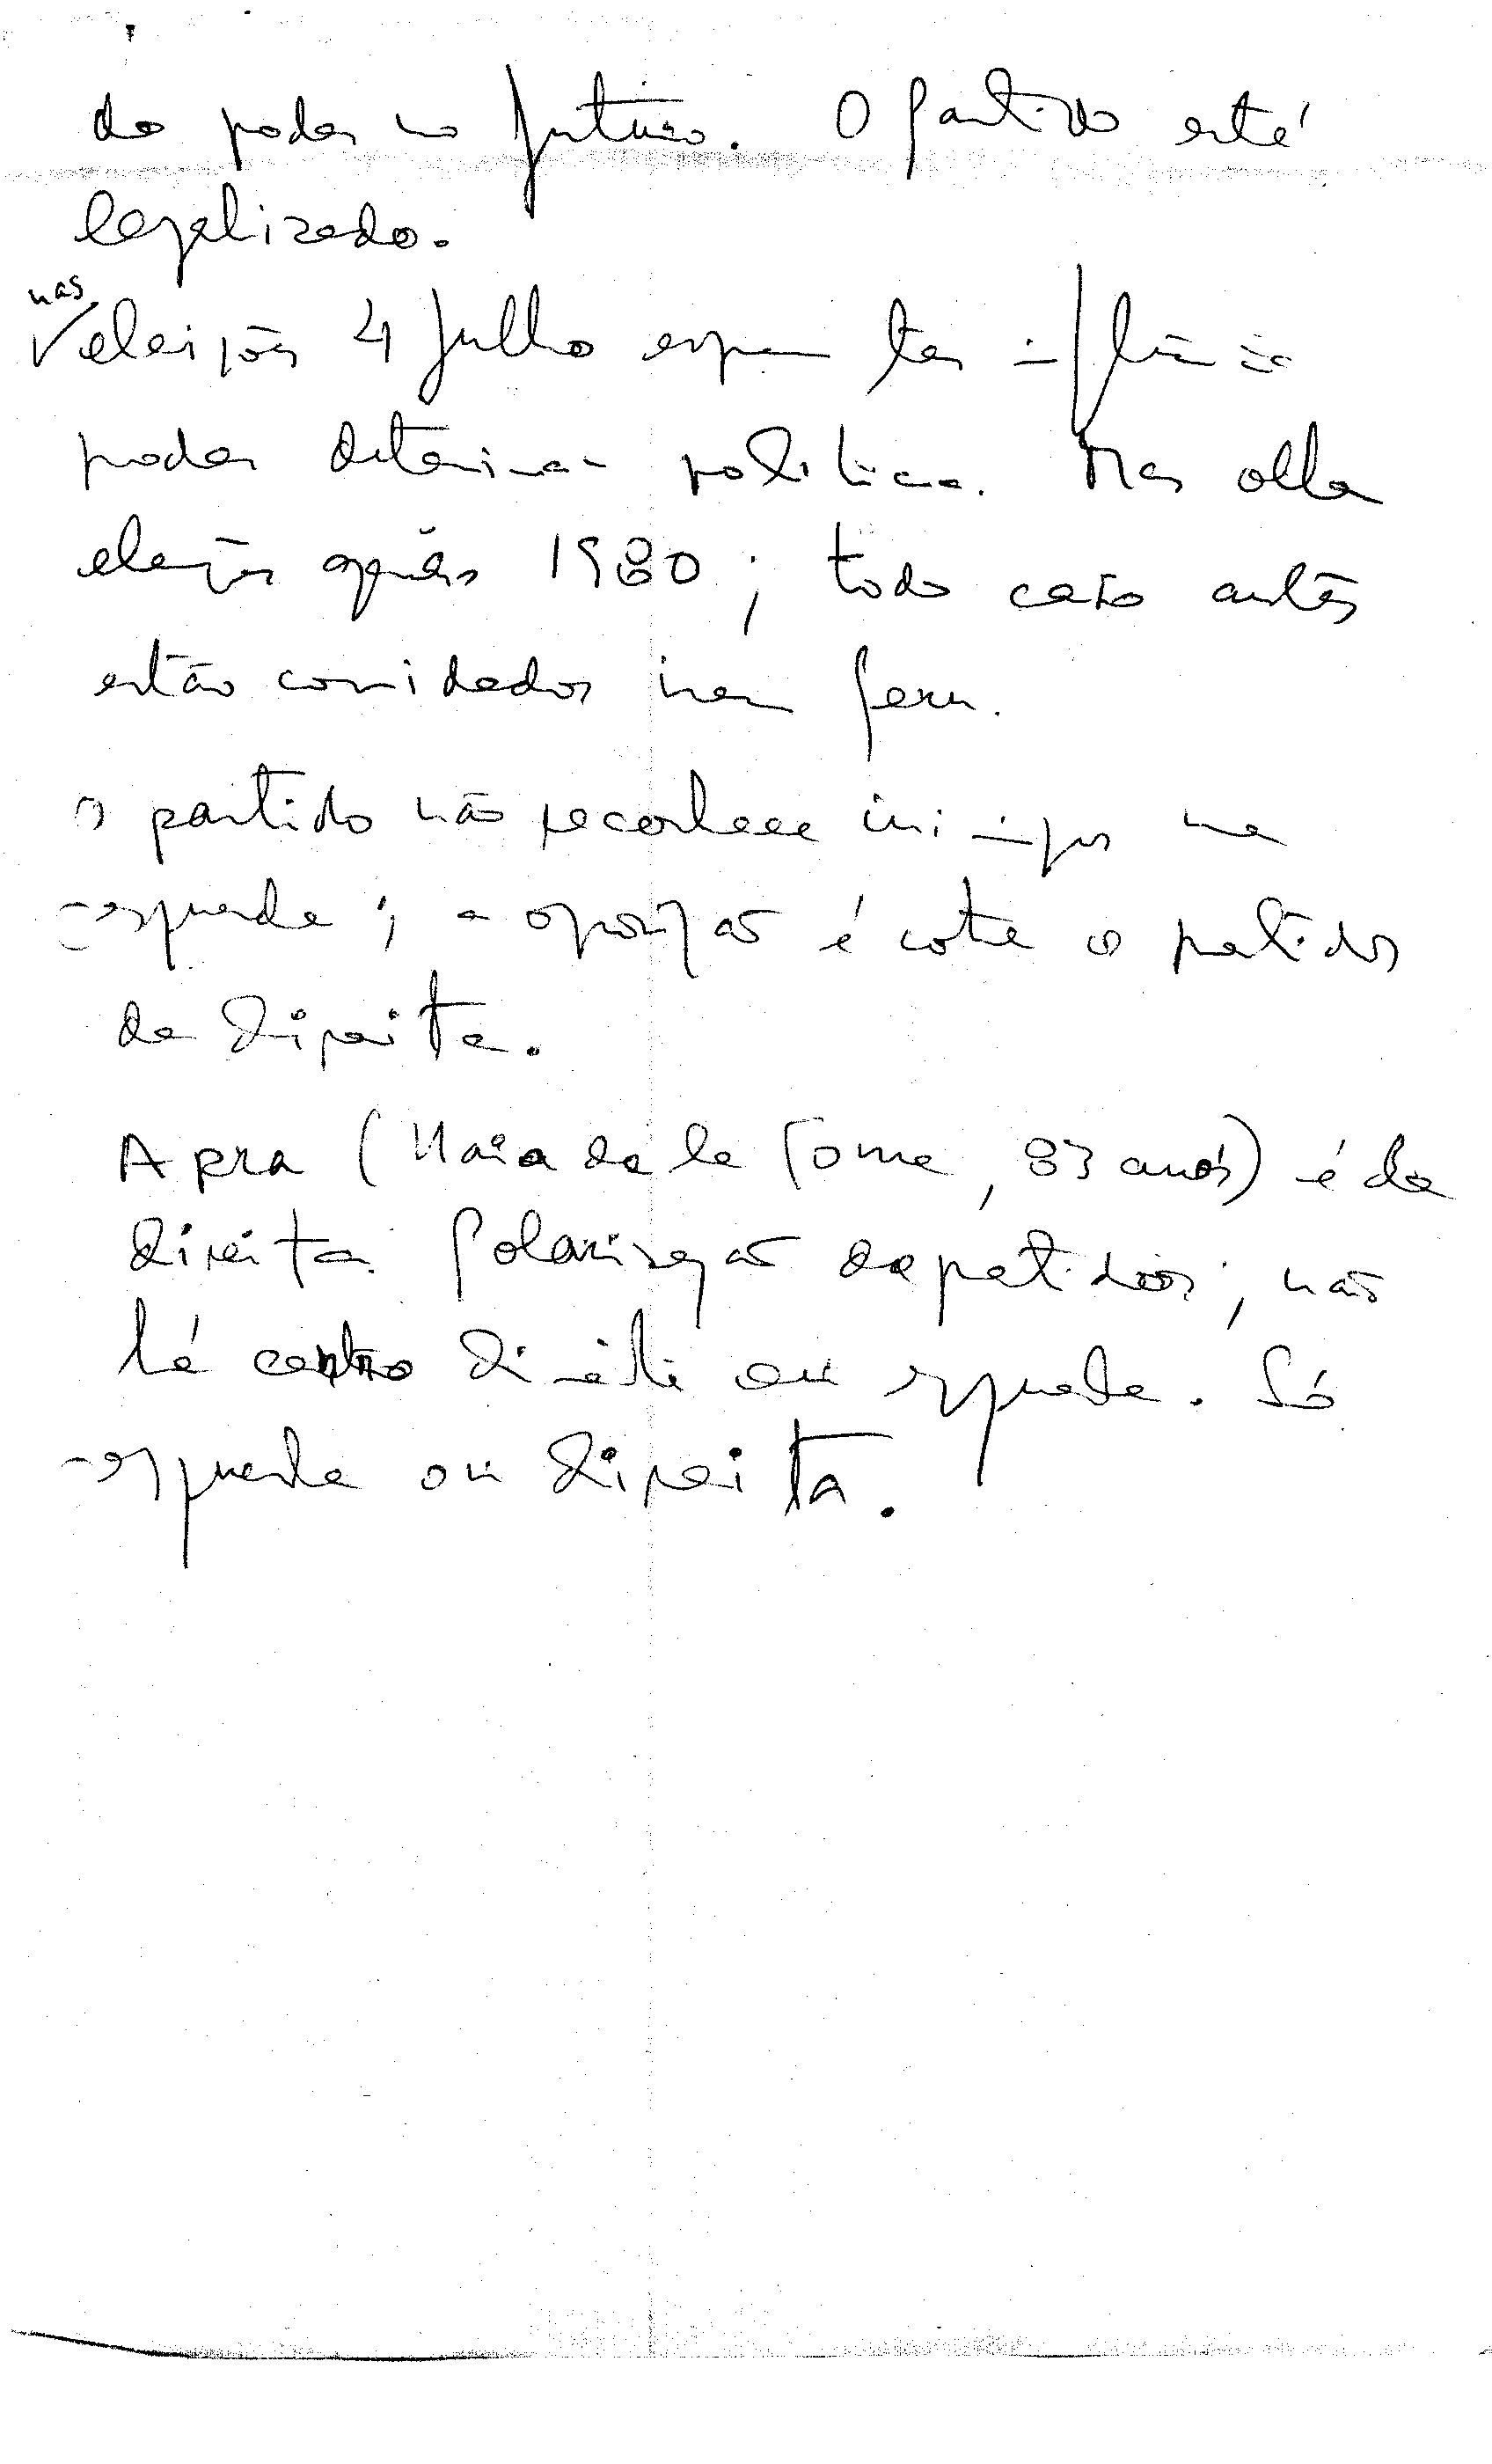 do poder no futuro. O Partido está
legalizado.
nas
eleições 4 Julho esperam ter influência
poder determinar politica. Mas olha
eleições 1980; todo caso
estão convidados irem Peru.
o partido não reconhece inimigos na
esquerda; a oposição é contra os partidos
da direita.
Apra (Haia de la Torre, 83 anos) é da
direita. Polarização de partidos; não
há centro direita ou esquerda. Só
esquerda ou direita.